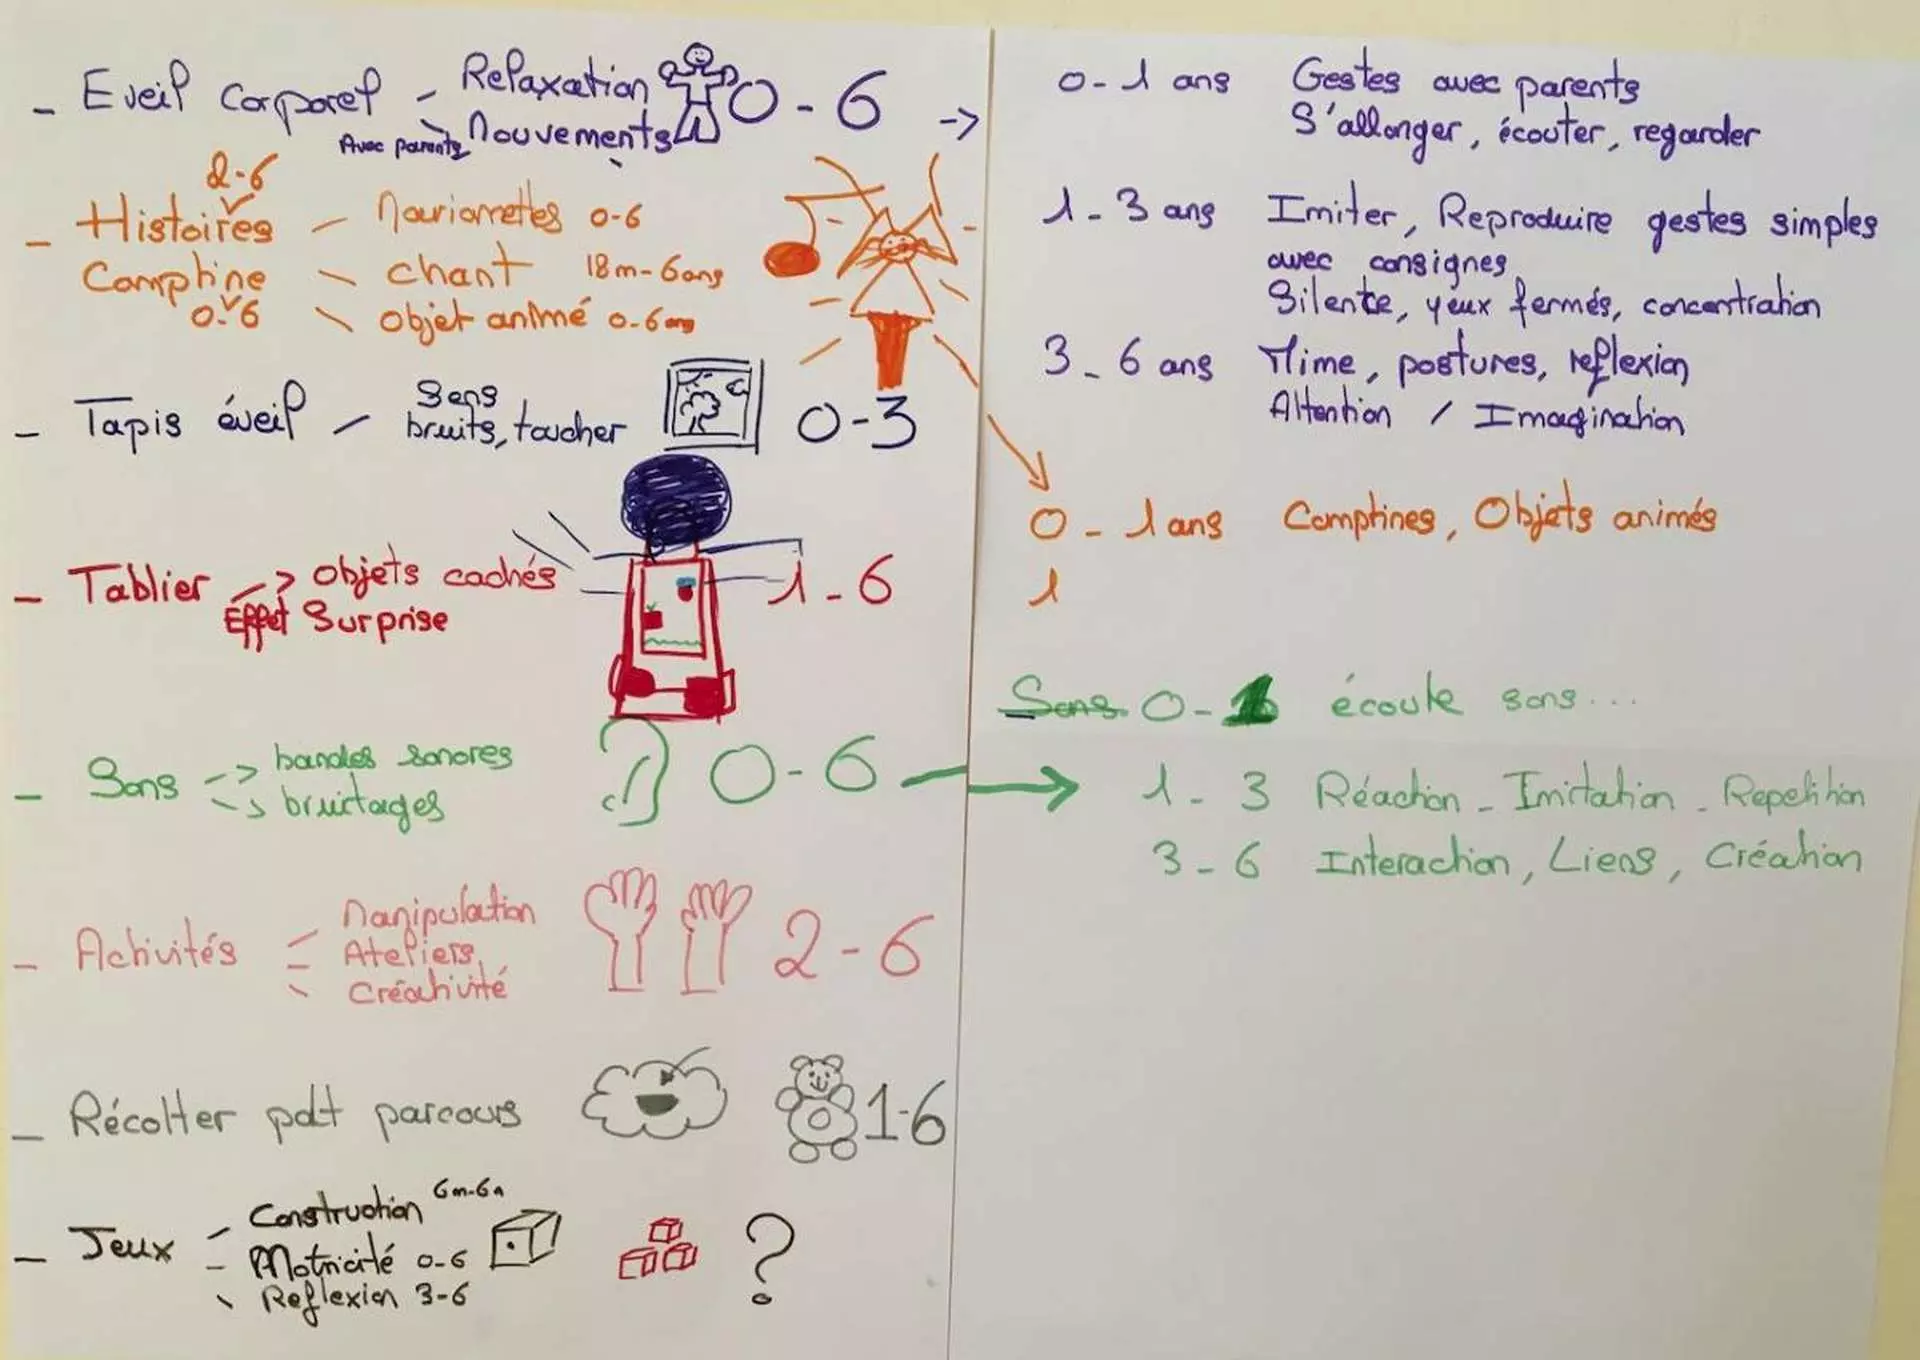 - Eveil corporel - Relaxation 0-6 ->
Avec parents Mouvements
2-6
- Histoires - Marionnettes 0-6
Comptine - chant 18m-6ans
0-6 - objet animé 0-6ans
- Tapis éveil - Sens
bruits, toucher 0-3
- Tablier -> objets cachés 1-6
Effet Surprise
- Sons -> bandes sonores 0-6
-> bruitages
- Activités - Manipulation 2-6
- Ateliers
- Créativité
- Récolter pdt parcours 1-6
- Jeux - Construction 6m-6a
- Motricité 0-6
- Reflexion 3-6
?
0-1 ans Gestes avec parents
S'allonger, écouter, regarder
1-3 ans Imiter, Reproduire gestes simples
avec consignes
Silente, yeux fermés, concentration
3-6 ans Mime, postures, reflexion
Attention / Imagination
0-1 ans Comptines, Objets animés
1
Sons 0-1 écoute sons...
1-3 Réaction - Imitation - Repetition
3-6 Interaction, Liens, Création